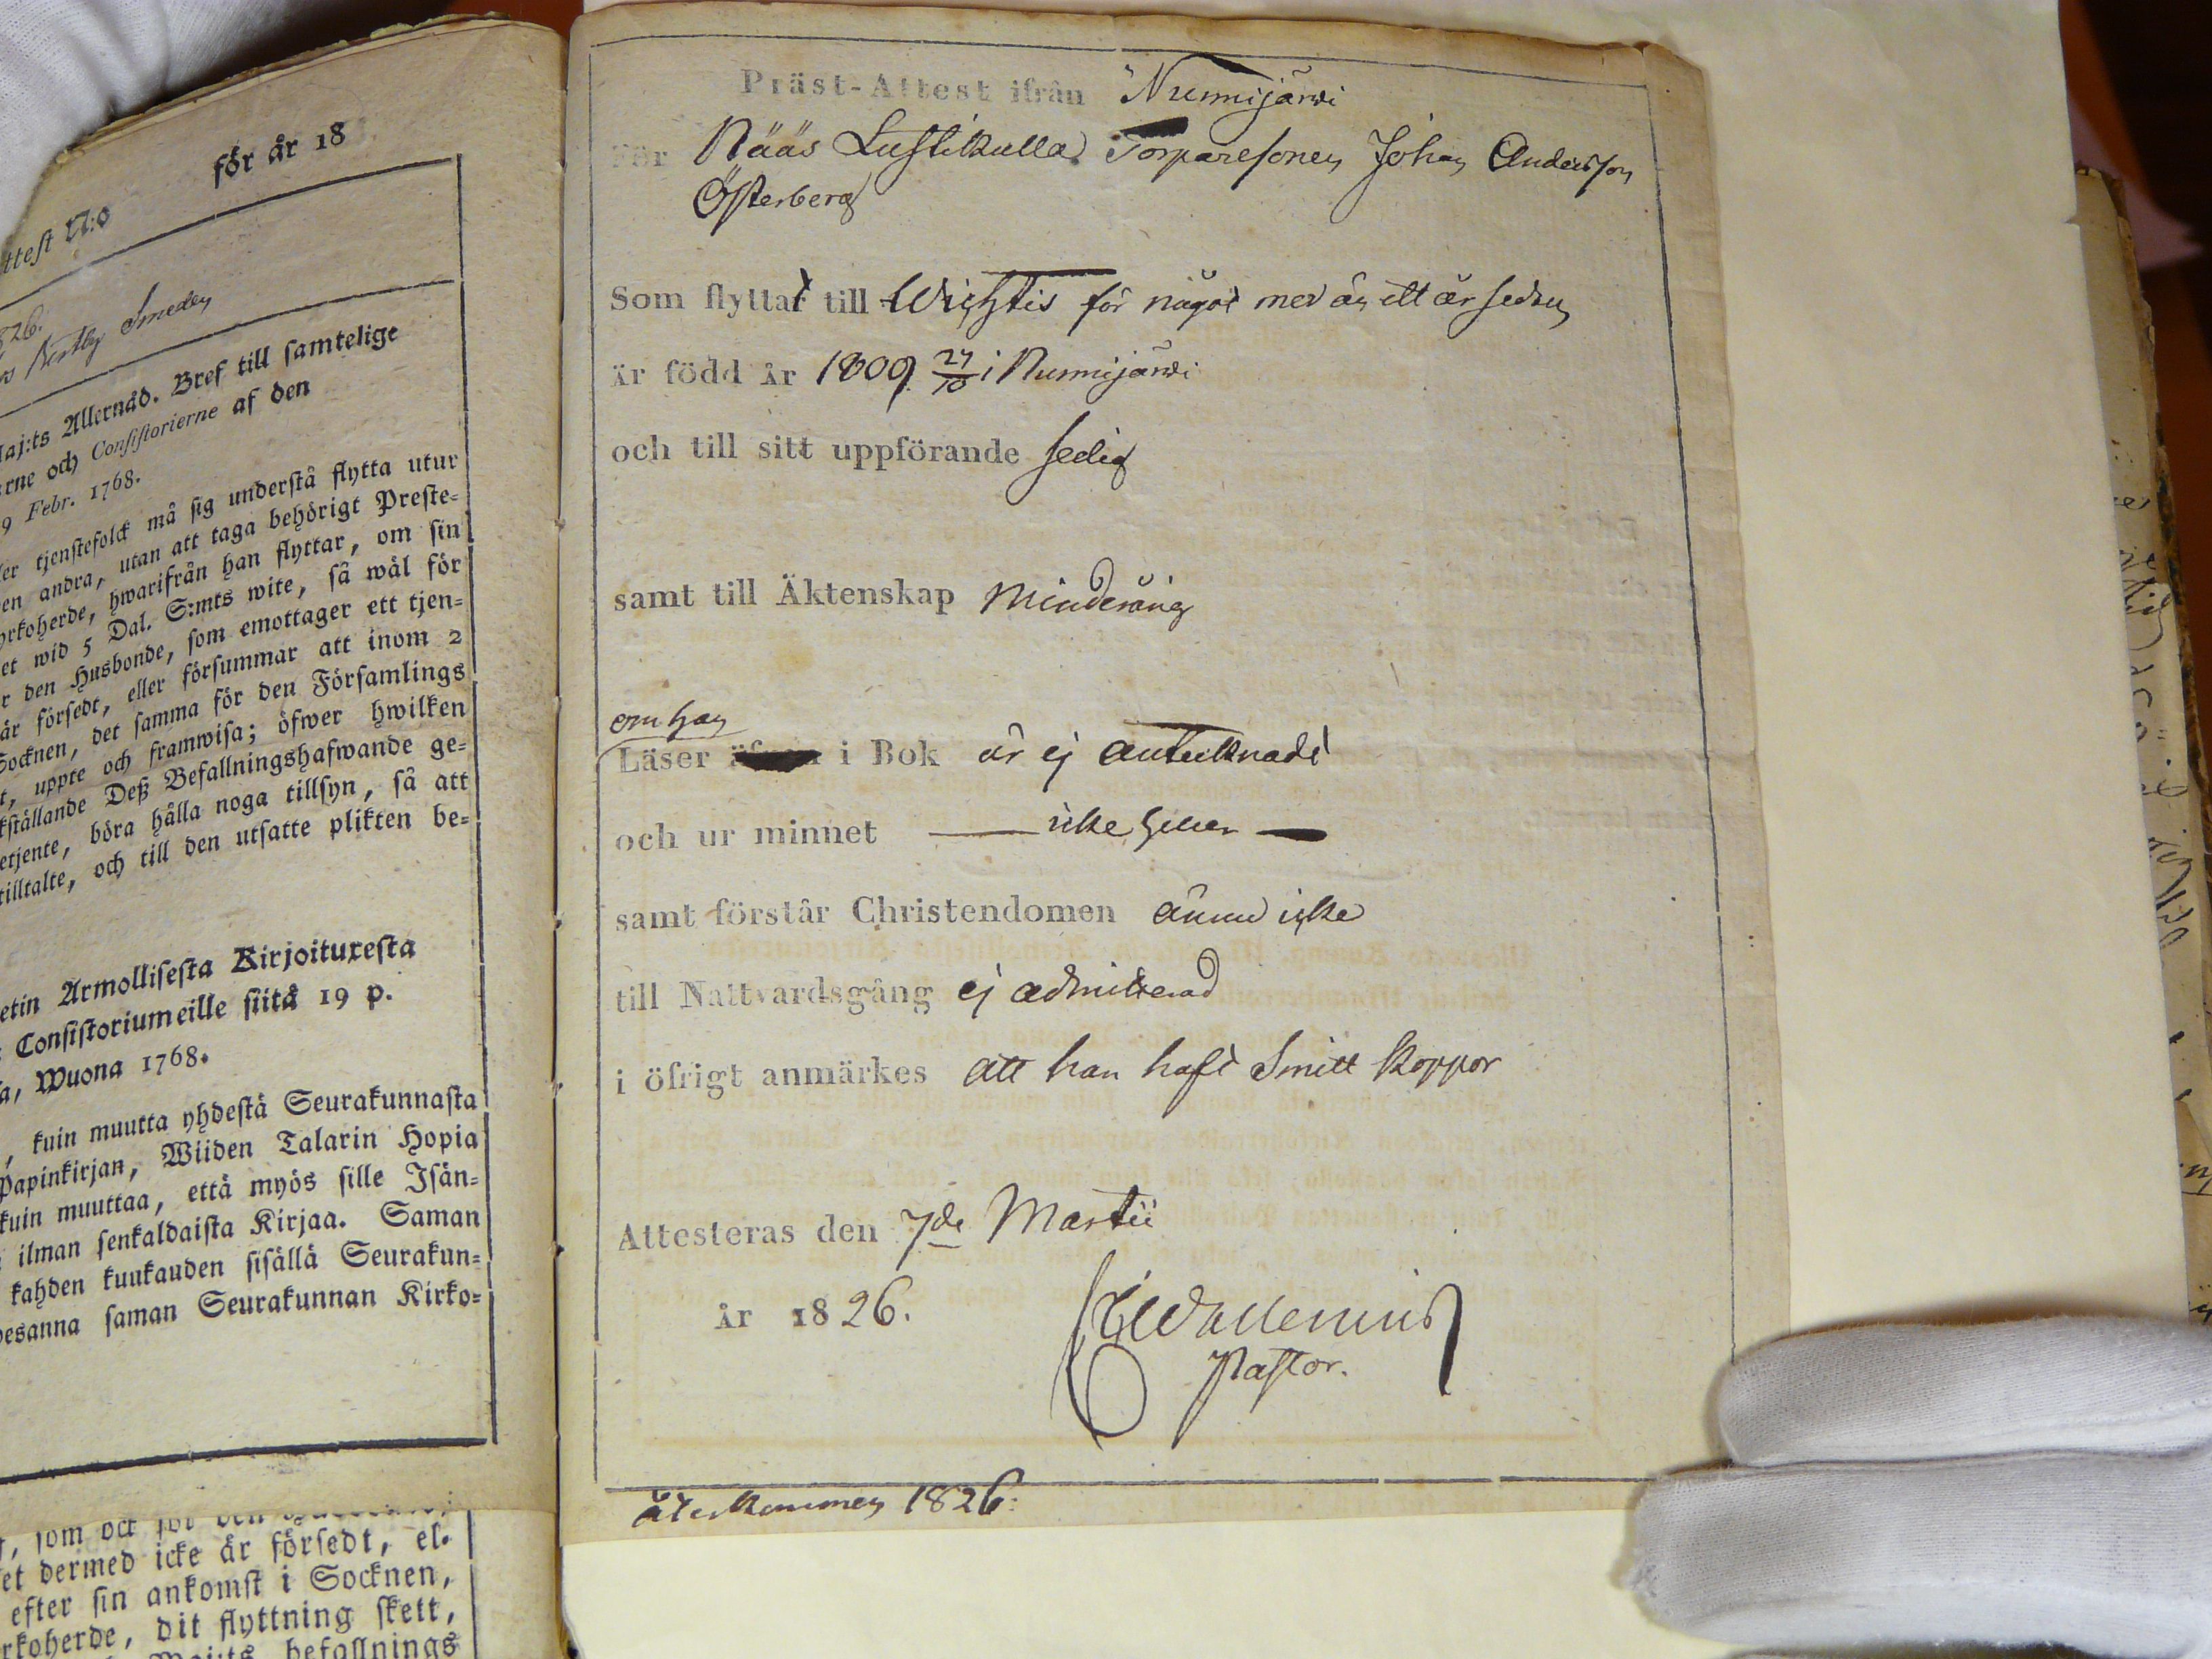 för år 18
ttest N:o
826.
Nertby Smeden
Maj:ts Allernåd. Bref till samtelige
rne och Consistorierne af den
9 Febr. 1768.
er tjenstefolck må sig understå flytta utur
en andra, utan att taga behörigt Preste-
yrkoherde, hwarifrån han flyttar, om sin
et wid 5 Dal. S:mts wite, så wäl för
r den Husbonde, som emottager ett tjen-
är försedt, eller försummar att inom 2
Socknen, det samma för den Församlings
t, uppte och framwisa; öfwer hwilken
kställande Deß Befallningshafwande ge-
etjente, böra hålla noga tillsyn, så att
tilltalte, och till den utsatte plikten be-
etin Armollisesta Kirjoituxesta
Consistoriumeille siitä 19 p.
a, Wuona 1768.
, kuin muutta yhdestä Seurakunnasta
Papinkirjan, Wiiden Talarin Hopia
kuin muuttaa, että myös sille Isän-
ilman senkaldaista Kirjaa. Saman
kahden kuukauden sisällä Seurakun-
esanna saman Seurakunnan Kirko-
, som ock för den
et dermed icke är försedt, el.
efter sin ankomst i Socknen,
rkoherde, dit flyttning skett,
Maj:ts befallnings
Präst-Attest ifrån Nummijärwi
För Nääs Lustikulla Torparesonen Johan Andersson
Österberg
Som flyttat till Wichtis för något mer än ett år sedan
är född år 1809 27/10 i Nummijärwi
och till sitt uppförande sedig
samt till Äktenskap Minderårig
om han
Läser i Bok är ej antecknadt
och ur minnet — icke heller —
samt förstår Christendomen ännu icke
till Nattvardsgång ej admitterad
i öfrigt anmärkes att han haft Smitt koppor
Attesteras den 7de Martii
år 1826.
Wallenius
Pastor.
återkommen 1826.